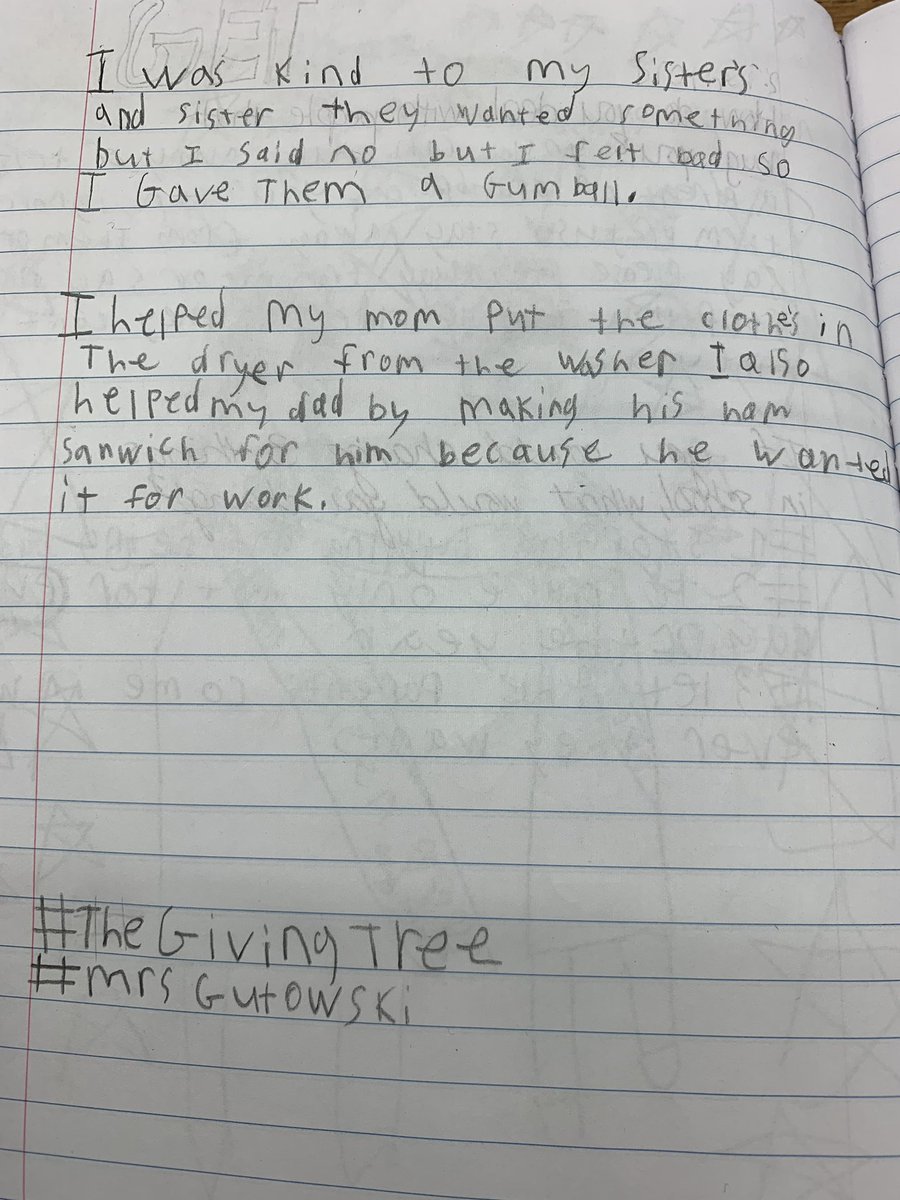 I was kind to my Sister's
and sister they wanted something
but I said no but I felt bad so
I Gave Them a Gumball.
I helped my mom put the clothe's in
The dryer from the washer I also
helped my dad by making his ham
sanwich for him because he wanted
it for work.
#The Giving Tree
#mrs Gutowski